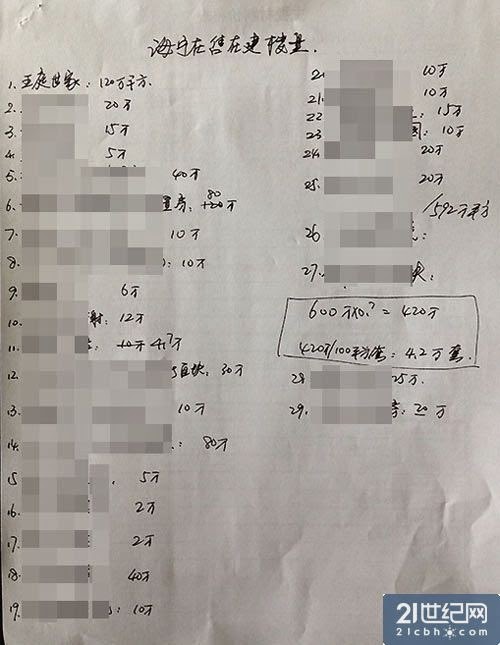 海宁在售在建楼量.
1. 王庭世家: 120万平方.
2. 20万
3. 15万
4. 5万
5. 40万
6. 置房: 80 +20万
7. 10万
8. : 10万
9. 6万
10. 谢: 12万
11. : 10万 4.7万
12. 区块: 30万
13. 10万
14. : 80万
15. 5万
16. 2万
17. 2万
18. 40万
19. : 10万
20. 10万
21. 10万
22. : 15万
23. 园: 10万
24. 20万
25. 20万
/592万平方
26. :
27.
600万×0.7 = 420万
420万/100平方/套: 4.2万套.
28. 25万.
29. : 20万
21世纪网
21cbh.com